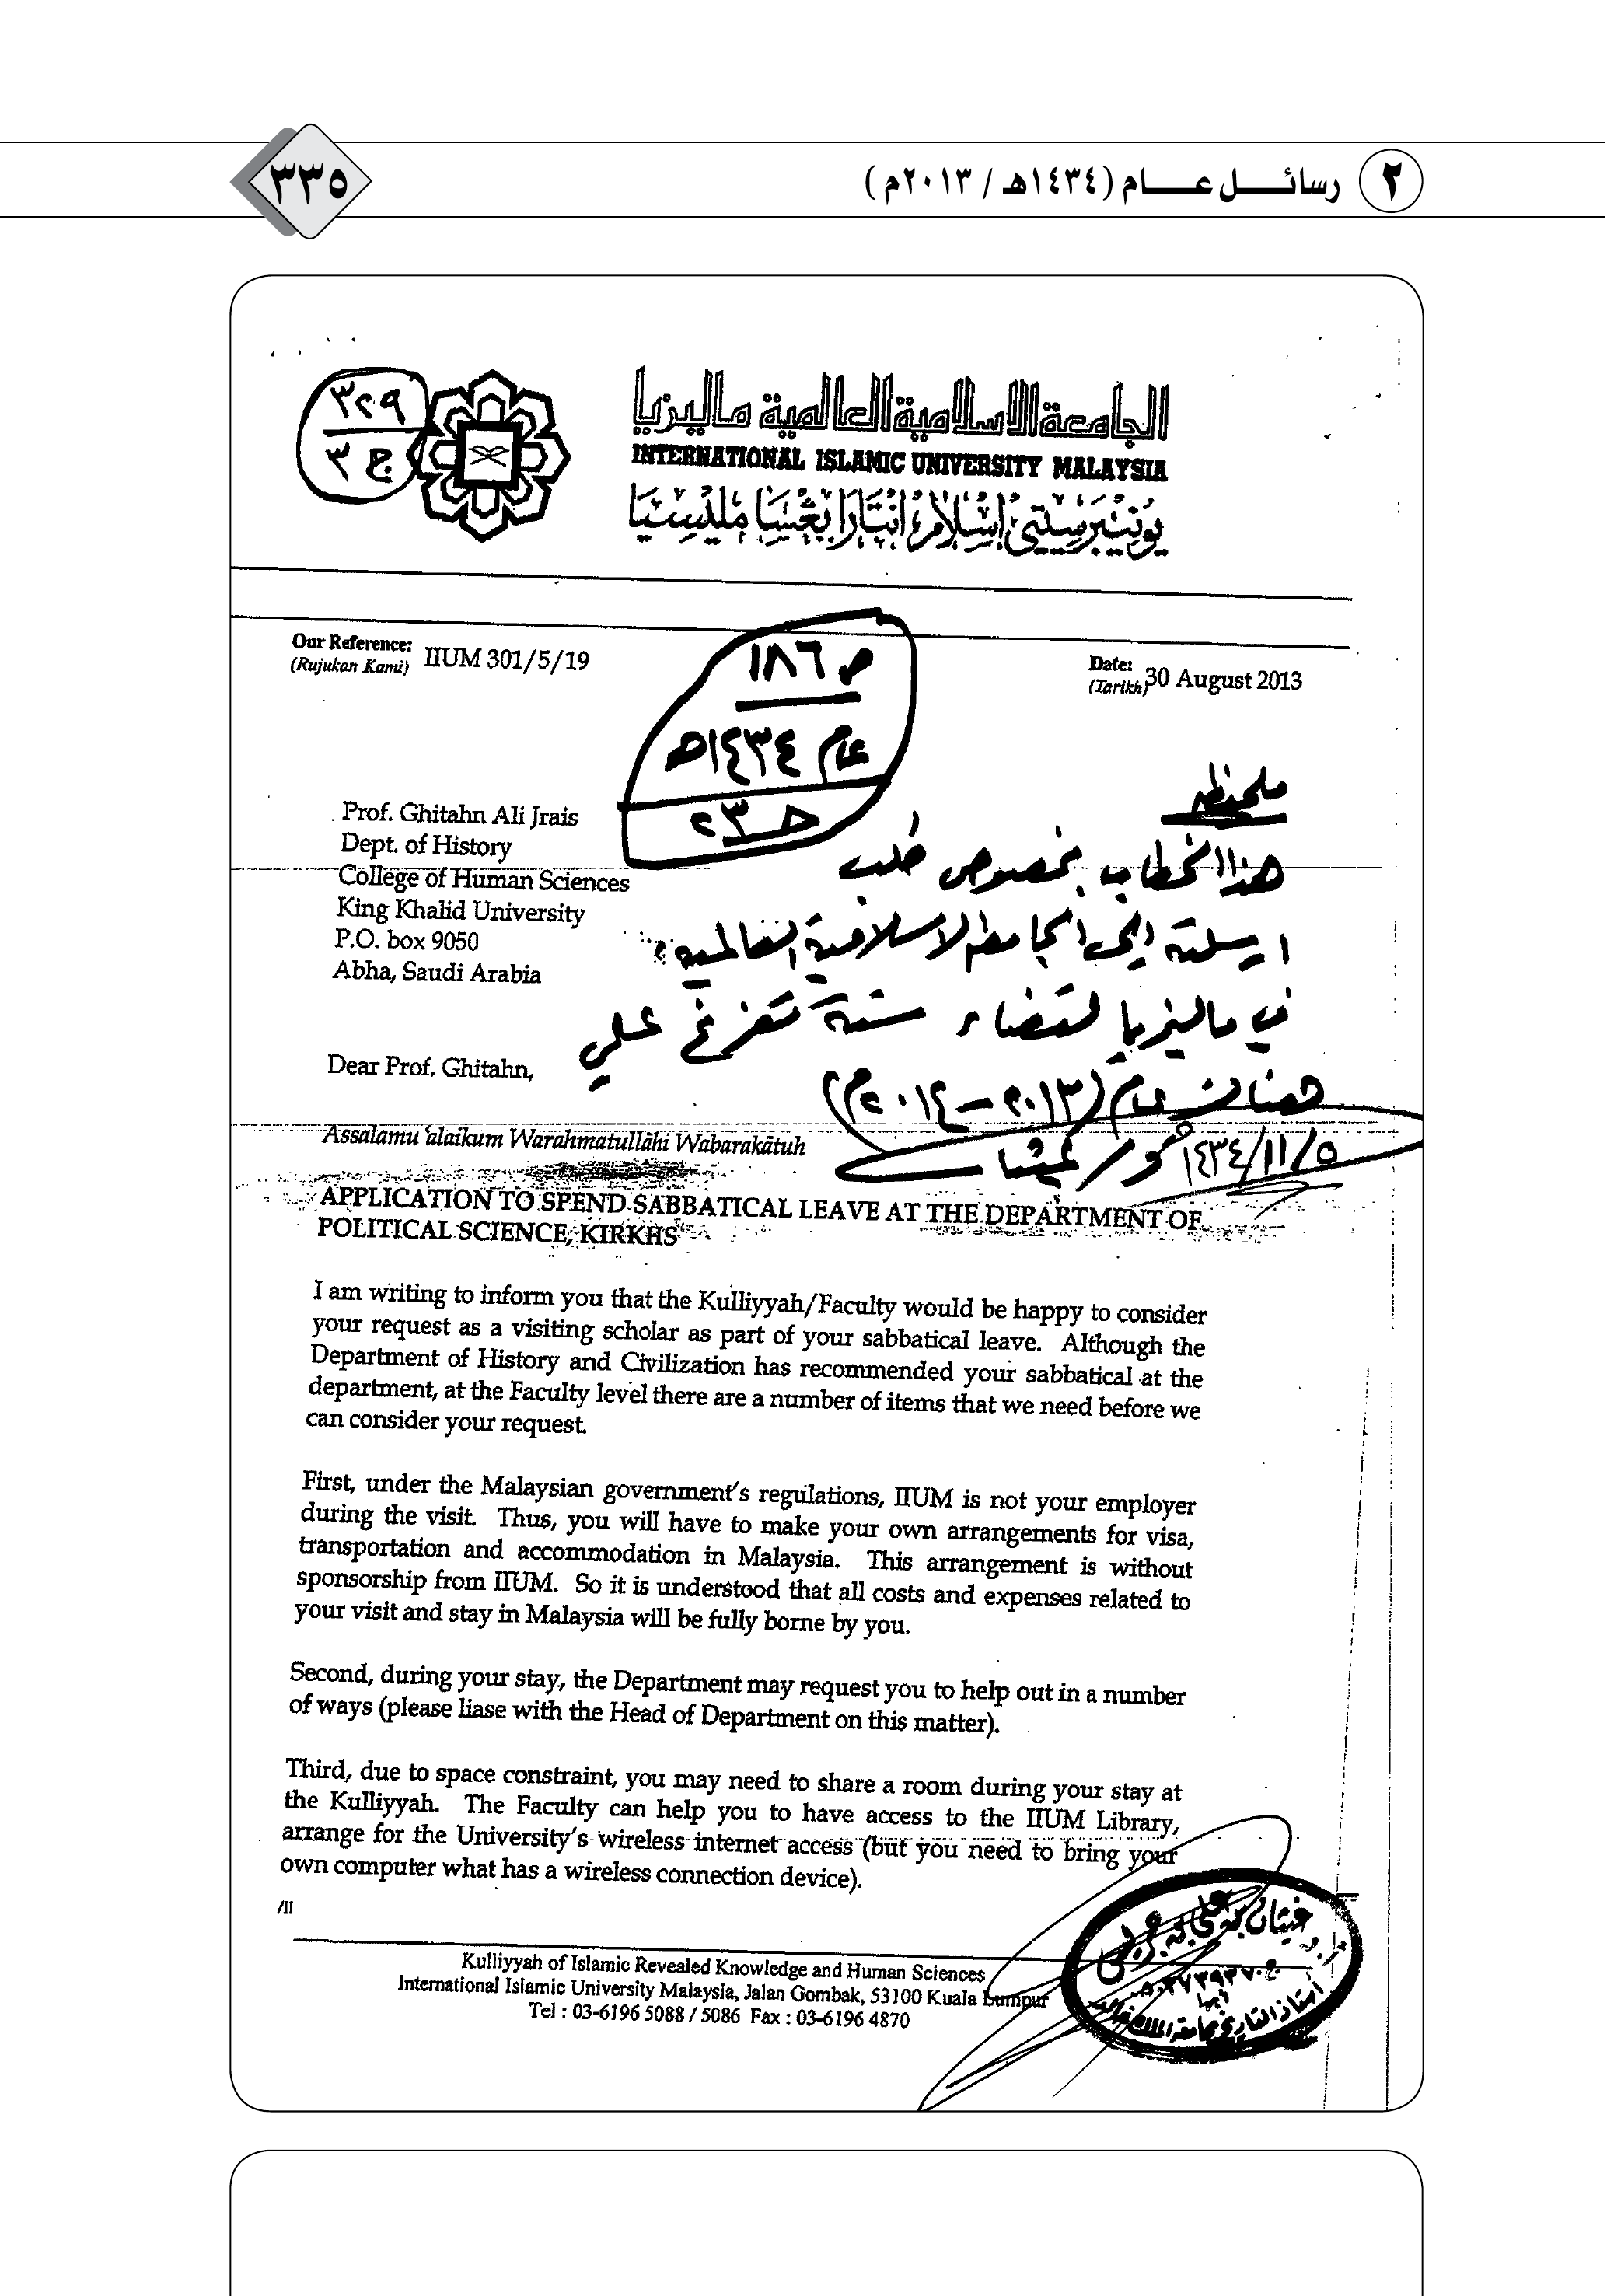 ٢ رسائل عام (١٤٣٤هـ / ٢٠١٣م)
٣٣٥
٣٢٩
ج ٣
الجامعة الإسلامية العالمية ماليزيا
INTERNATIONAL ISLAMIC UNIVERSITY MALAYSIA
يونيۏرسيتي اسلام انتارابڠسا مليسيا
Our Reference: IIUM 301/5/19
(Rujukan Kami)
Date: 30 August 2013
(Tarikh)
ص ١٨٦
عام ١٤٣٤هـ
حـ ٢٣
Prof. Ghitahn Ali Jrais
Dept. of History
College of Human Sciences
King Khalid University
P.O. box 9050
Abha, Saudi Arabia
ملحوظة
هذا الخطاب بخصوص طلب
ارسلته إلى الجامعة الاسلامية العالمية
في ماليزيا لقضاء سنة تفرغ علمي
هناك عام (٢٠١٣ – ٢٠١٤م)
١٤٣٤/١١/٥
Dear Prof. Ghitahn,
Assalamu 'alaikum Warahmatullāhi Wabarakātuh
APPLICATION TO SPEND SABBATICAL LEAVE AT THE DEPARTMENT OF
POLITICAL SCIENCE, KIRKHS
I am writing to inform you that the Kulliyyah/Faculty would be happy to consider
your request as a visiting scholar as part of your sabbatical leave. Although the
Department of History and Civilization has recommended your sabbatical at the
department, at the Faculty level there are a number of items that we need before we
can consider your request.
First, under the Malaysian government's regulations, IIUM is not your employer
during the visit. Thus, you will have to make your own arrangements for visa,
transportation and accommodation in Malaysia. This arrangement is without
sponsorship from IIUM. So it is understood that all costs and expenses related to
your visit and stay in Malaysia will be fully borne by you.
Second, during your stay, the Department may request you to help out in a number
of ways (please liase with the Head of Department on this matter).
Third, due to space constraint, you may need to share a room during your stay at
the Kulliyyah. The Faculty can help you to have access to the IIUM Library,
arrange for the University's wireless internet access (but you need to bring your
own computer what has a wireless connection device).
/II
Kulliyyah of Islamic Revealed Knowledge and Human Sciences
International Islamic University Malaysia, Jalan Gombak, 53100 Kuala Lumpur
Tel : 03-6196 5088 / 5086 Fax : 03-6196 4870
غيثان بن علي بن جريس
أبها
أستاذ التاريخ بجامعة الملك خالد